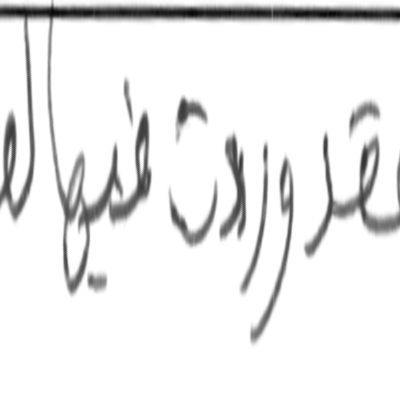 فقد وردت فيها